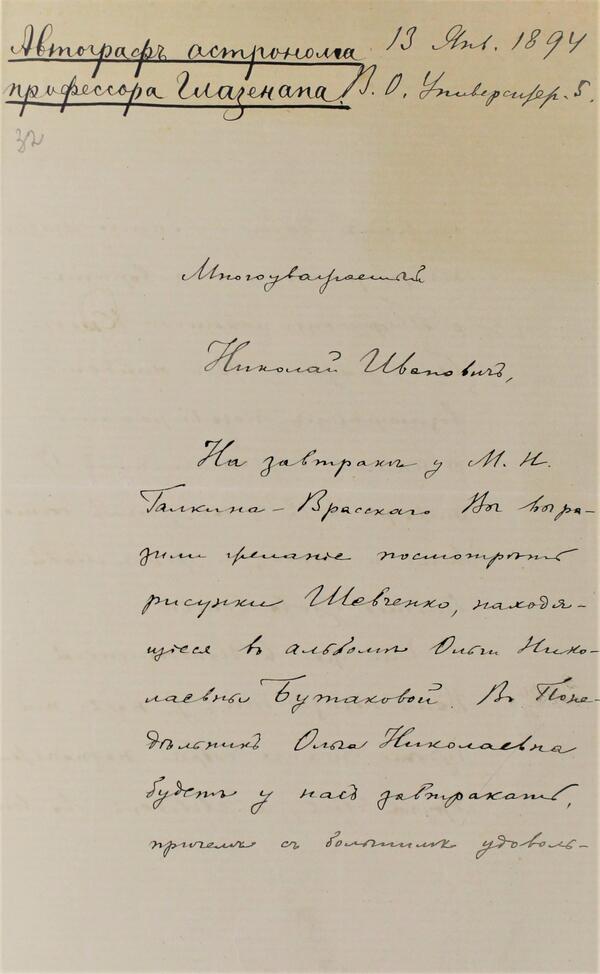 Автографъ астронома 13 Янв. 1894
профессора Глазенапа. В. О. Университ. 5.
32
Многоуважаемый
Николай Ивановичъ,
На завтракѣ у М. Н.
Галкина-Врасскаго Вы выра-
зили желаніе посмотрѣть
рисунки Шевченко, находя-
щіеся въ альбомѣ Ольги Нико-
лаевны Бутаковой. Въ Поне-
дѣльникъ Ольга Николаевна
будетъ у насъ завтракать,
причемъ съ большимъ удоволь-